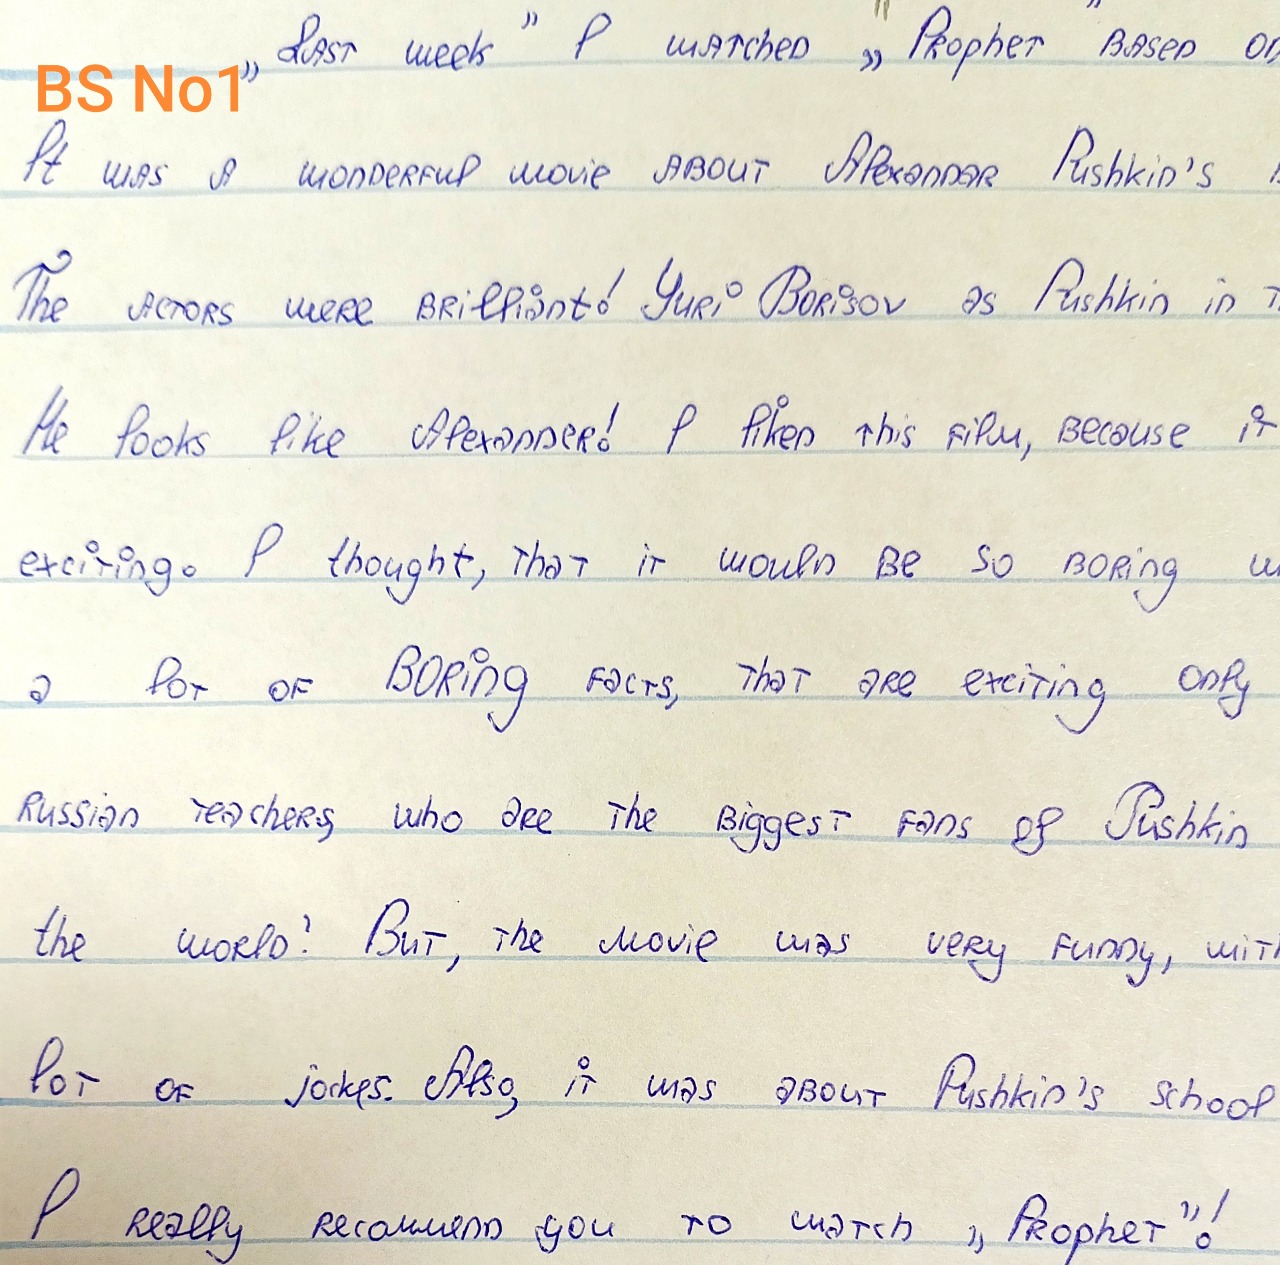 „Last week” I watched „Prophet” based on
BS No1
It was a wonderful movie about Alexandar Pushkin's
The actors were brilliant! Yuri Borisov as Pushkin in
He looks like Alexander! I liked this film, because it
exciting. I thought, that it would be so boring
a lot of boring facts, that are exciting only
Russian teachers, who are the biggest fans of Pushkin
the world! But, the movie was very funny, with
lot of jockes. Also, it was about Pushkin's school
I really recommend you to watch „Prophet”!